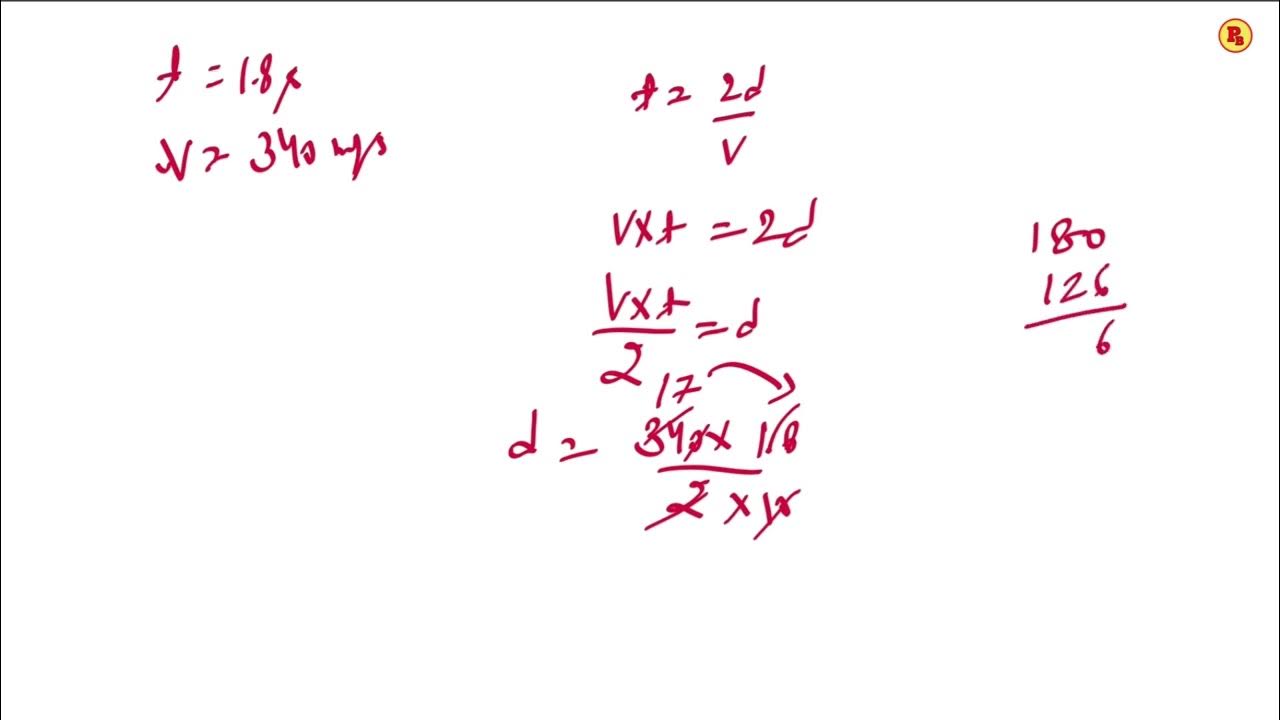 t = 1.8 s
V = 340 m/s
t = 2d
V
V x t = 2d
V x t = d
2
17
d = 340 x 1.8
2 x 10
180
126
6
PB